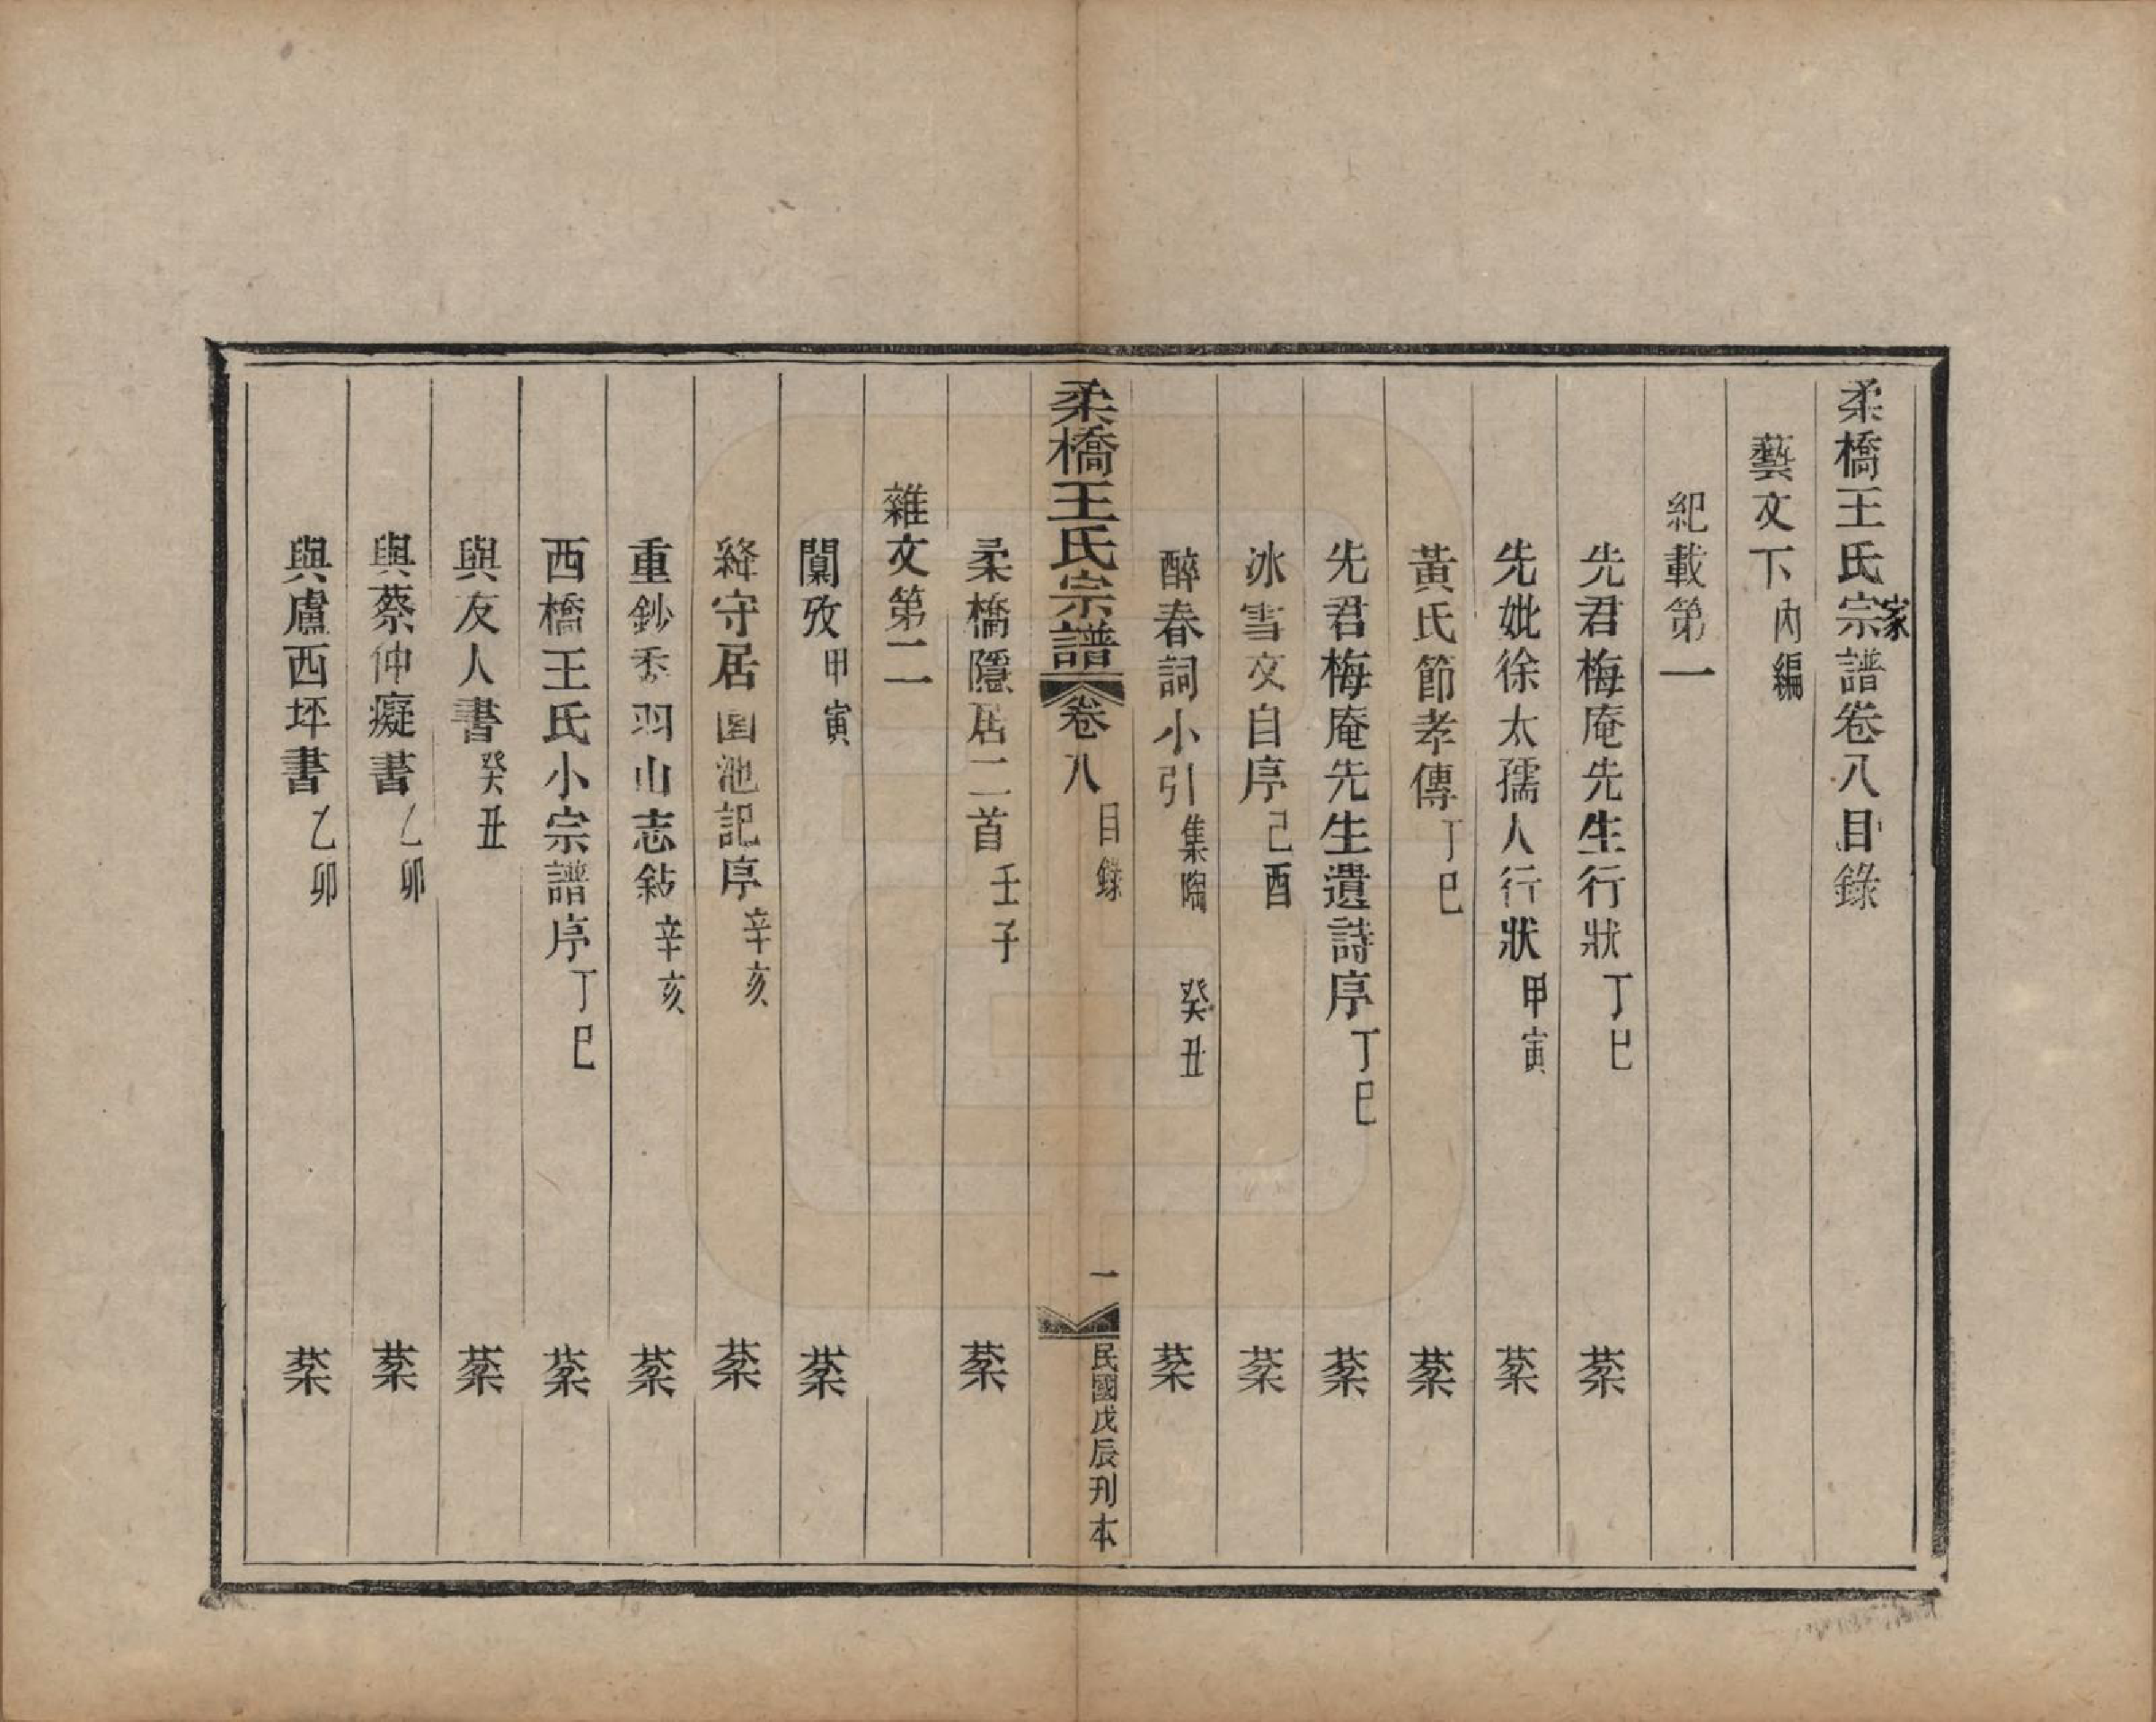 柔橋王氏宗譜卷八目錄
家
藝文下內編
紀載第一
先君梅庵先生行狀丁巳 棻
先妣徐太孺人行狀甲寅 棻
黃氏節孝傳丁巳 棻
先君梅庵先生遺詩序丁巳 棻
冰雪文自序己酉 棻
醉春詞小引集陶 癸丑 棻
柔橋王氏宗譜 卷八 目錄 一 民國戊辰刊本
柔橋隱居二首壬子 棻
雜文第二
闑攷甲寅 棻
絳守居園池記序辛亥 棻
重鈔委羽山志敍辛亥 棻
西橋王氏小宗譜序丁巳 棻
與友人書癸丑 棻
與蔡仲癡書乙卯 棻
與盧西坪書乙卯 棻